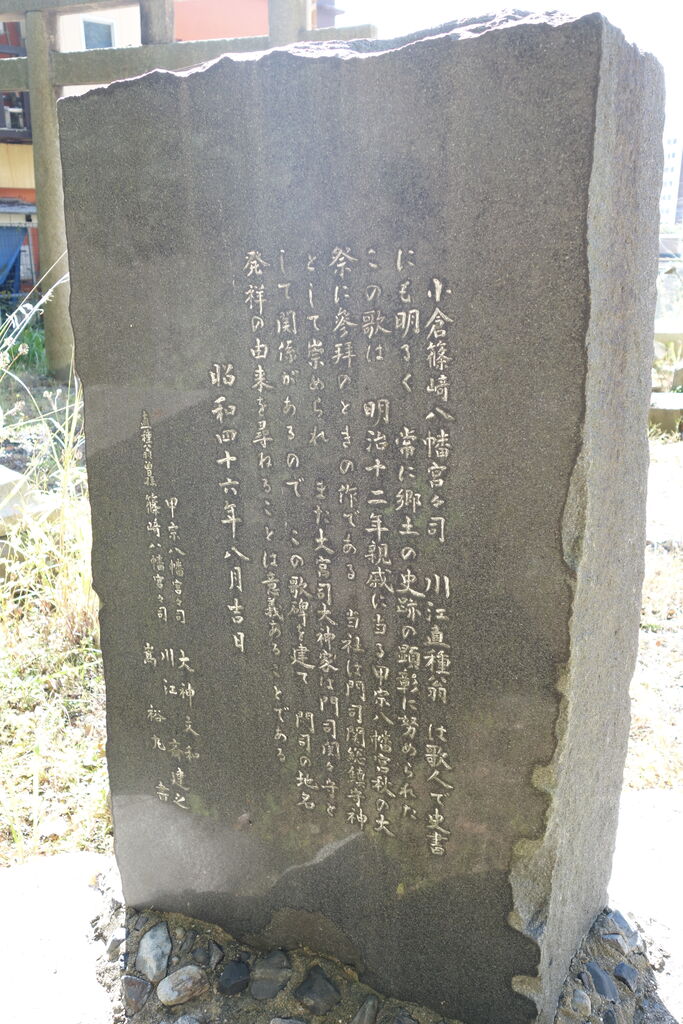 小倉篠崎八幡宮々司　川江直種翁　は歌人で史書
にも明るく　常に郷土の史跡の顕彰に努められた
この歌は　明治十二年親戚に当る甲宗八幡宮秋の大
祭に參拜のときの作である　当社は門司関総鎮守神
として崇められ　また大宮司大神家は門司関々守と
して関係があるので　この歌碑を建て　門司の地名
発祥の由来を尋ねることは意義あることである
昭和四十六年八月吉日
甲宗八幡宮々司　大神文和
直種翁曽孫　篠崎八幡宮々司　川江